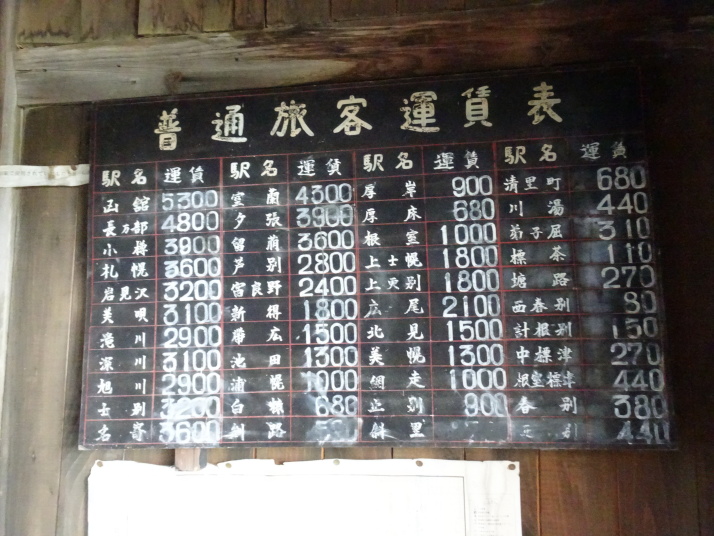 普通旅客運賃表
駅名 運賃 駅名 運賃 駅名 運賃 駅名 運賃
函館 5300 室蘭 4300 厚岸 900 清里町 680
長万部 4800 夕張 3900 厚床 680 川湯 440
小樽 3900 留萠 3600 根室 1000 弟子屈 310
札幌 3600 芦別 2800 上士幌 1800 標茶 110
岩見沢 3200 富良野 2400 上更別 1800 塘路 270
美唄 3100 新得 1800 広尾 2100 西春別 80
滝川 2900 帯広 1500 北見 1500 計根別 150
深川 3100 池田 1300 美幌 1300 中標津 270
旭川 2900 浦幌 1000 網走 1000 根室標津 440
士別 3200 白糠 680 止別 900 春別 380
名寄 3600 釧路 斜里 別 440